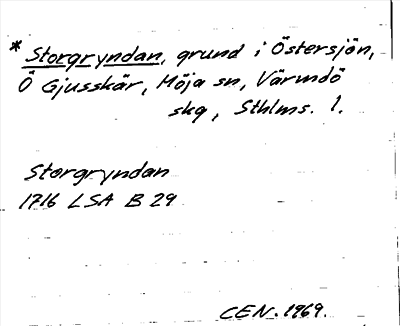 * Storgryndan, grund i Östersjön,
Ö Gjusskär, Möja sn, Värmdö
skg, Sthlms. l.
Storgryndan
1716 LSA B 29
CEN. 1969.